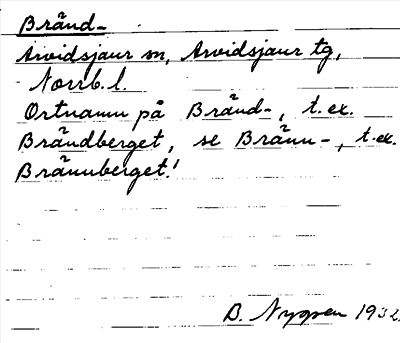 Bränd-
Arvidsjaur sn, Arvidsjaur tg,
Norrb. l.
Ortnamn på Bränd-, t. ex.
Brändberget, se Bränn-, t. ex.
Brännberget!
B. Nygren 1932.